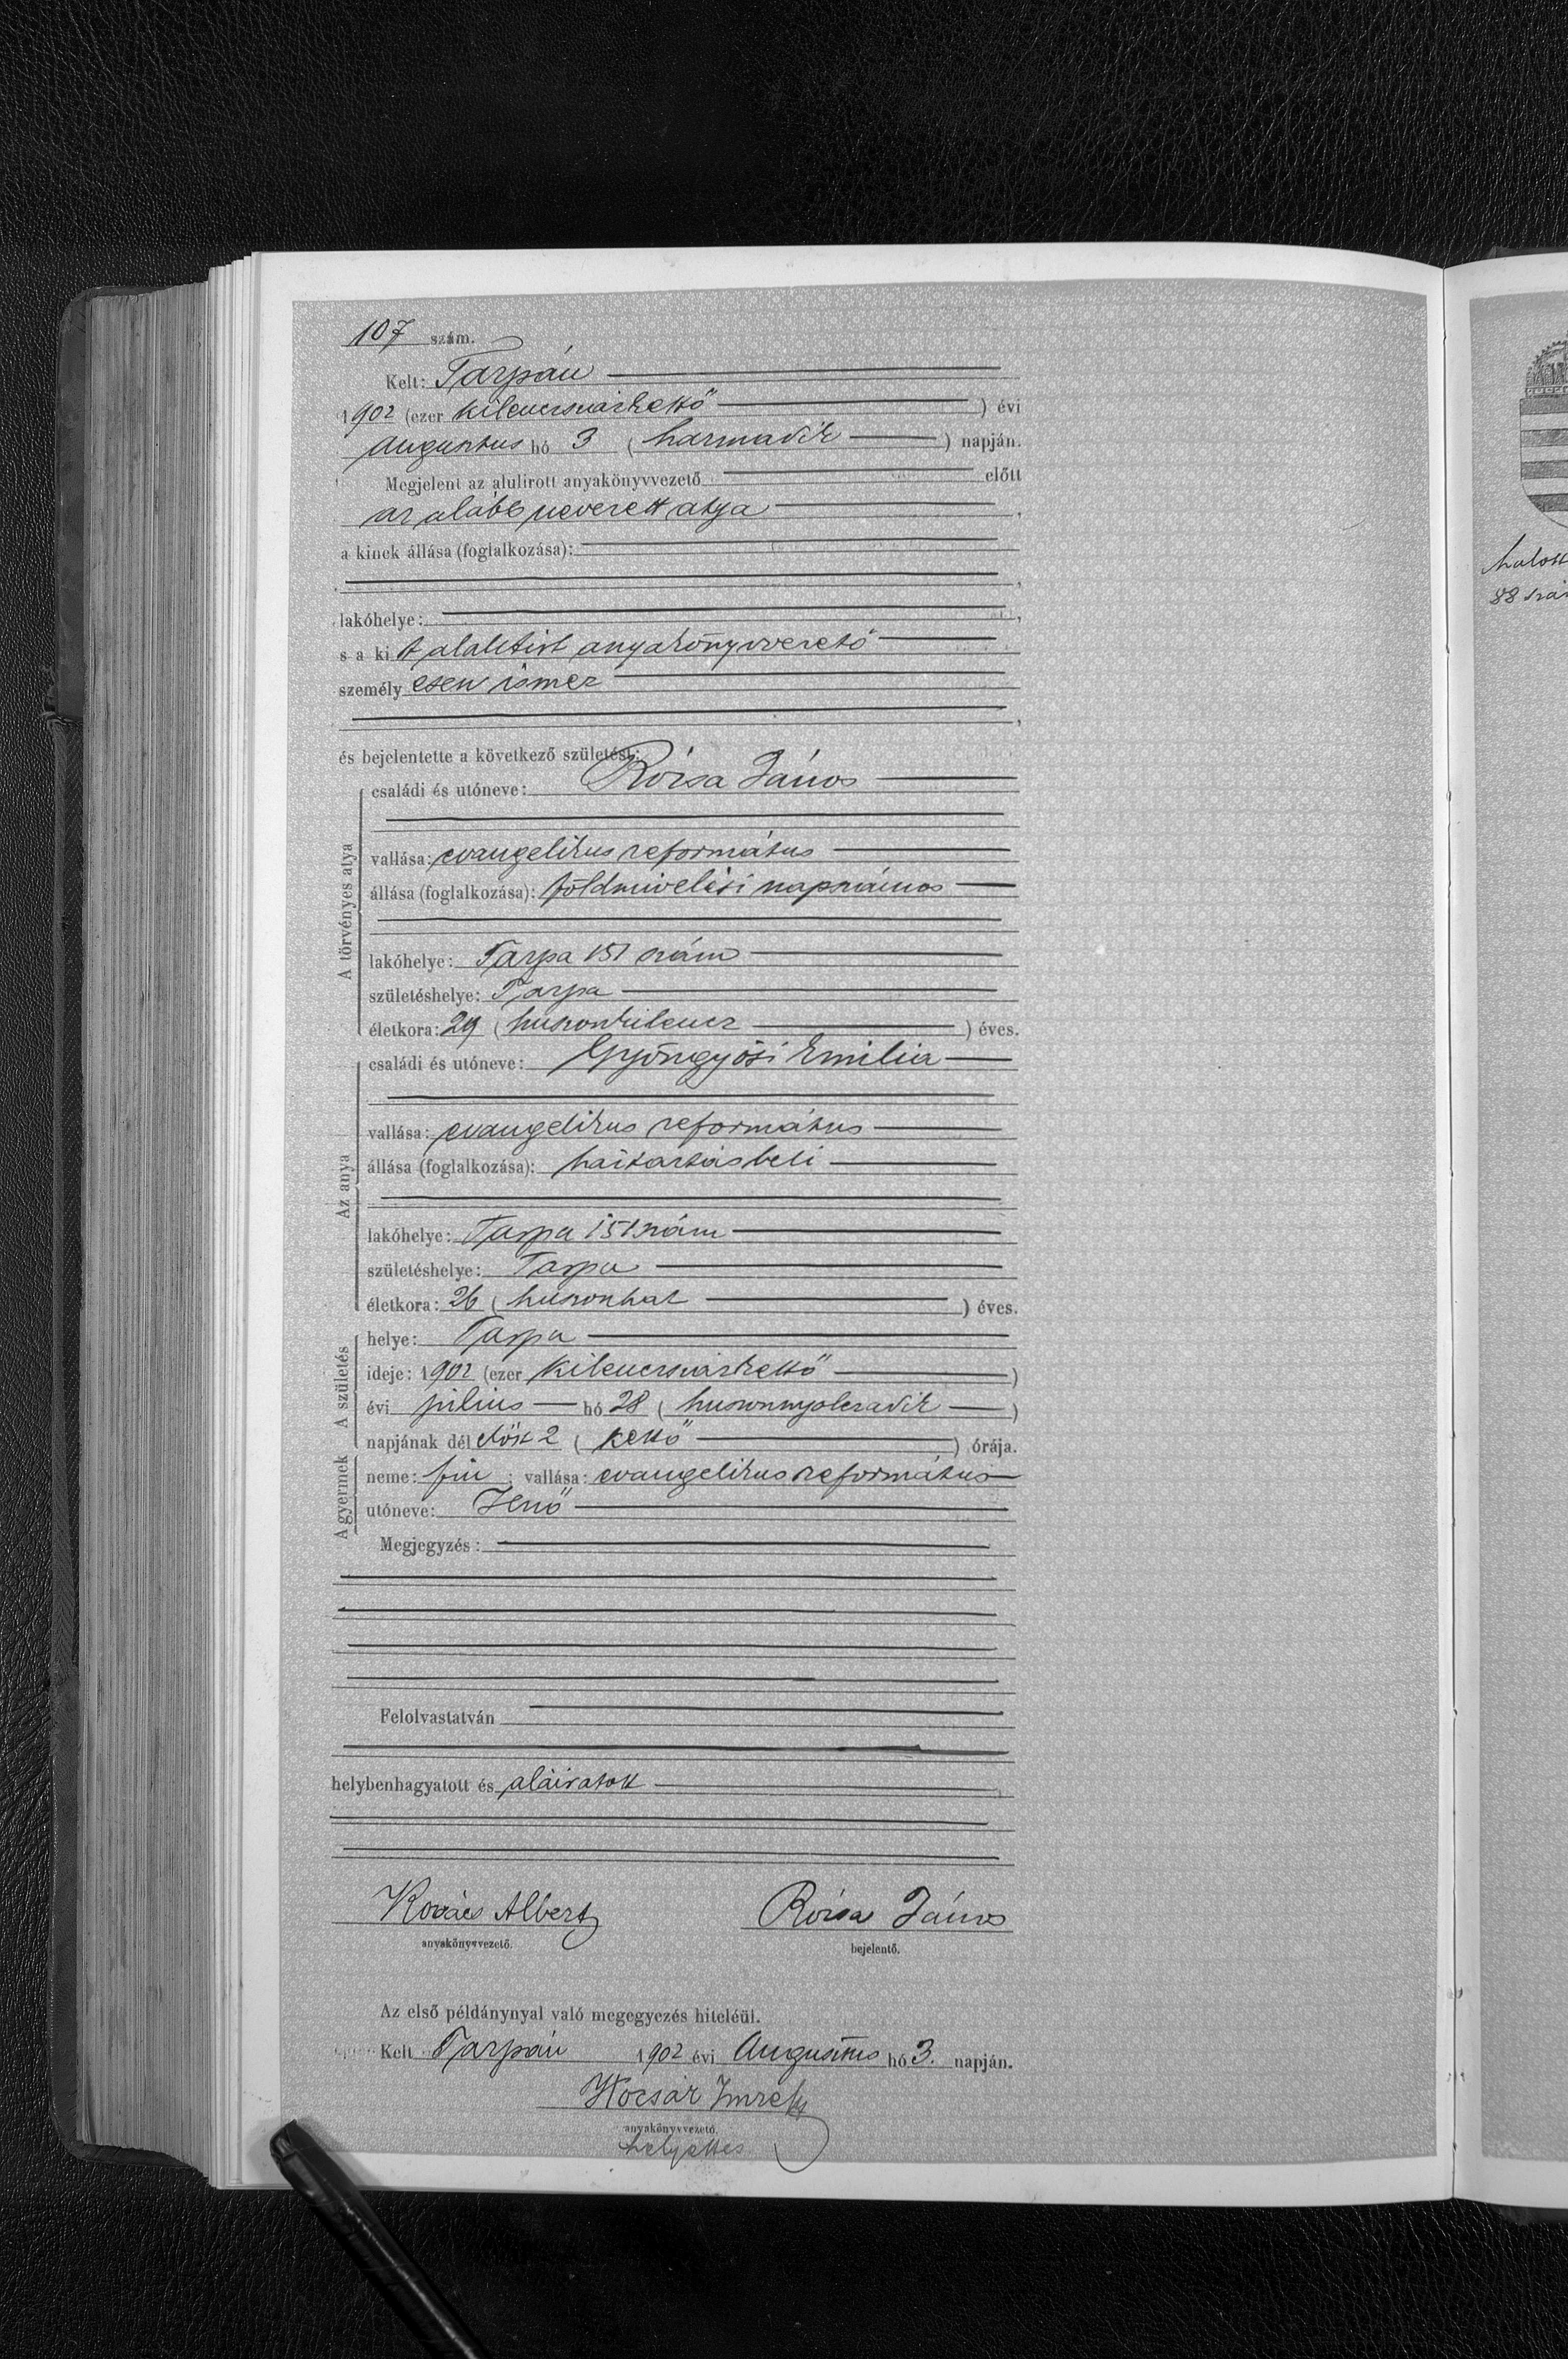 107 szám.
Kelt: Tarpán
1902 (ezer kilenczszázkettő) évi
Augusztus hó 3 (harmadik) napján.
Megjelent az alulirott anyakönyvvezető előtt
az alább nevezett atya,
a kinek állása (foglalkozása):
,
lakóhelye: ,
s a ki t alulírt anyakönyvvezető
személy esen ismer
,
és bejelentette a következő születést:
A törvényes atya
családi és utóneve: Rózsa János
vallása: evangelikus református
állása (foglalkozása): földmivelési napszámos
lakóhelye: Tarpa 151 szám
születéshelye: Tarpa
életkora: 29 (huszonkilencz) éves.
Az anya
családi és utóneve: Gyöngyösi Emilia
vallása: evangelikus református
állása (foglalkozása): háztartásbeli
lakóhelye: Tarpa 151 szám
születéshelye: Tarpa
életkora: 26 (huszonhat) éves.
A születés
helye: Tarpa
ideje: 1902 (ezer kilenczszázkettő)
évi július hó 28 (huszonnyolczadik)
napjának dél előtt 2 (kettő) órája.
A gyermek
neme: fiu; vallása: evangelikus református
utóneve: Jenő
Megjegyzés:
Felolvastatván
helybenhagyatott és aláiratott
Kovács Albert Rózsa János
anyakönyvvezető. bejelentő.
Az első példánynyal való megegyezés hiteléül.
Kelt Tarpán 1902 évi Augusztus hó 3. napján.
Kocsár Imre
anyakönyvvezető.
helyettes
88 szá